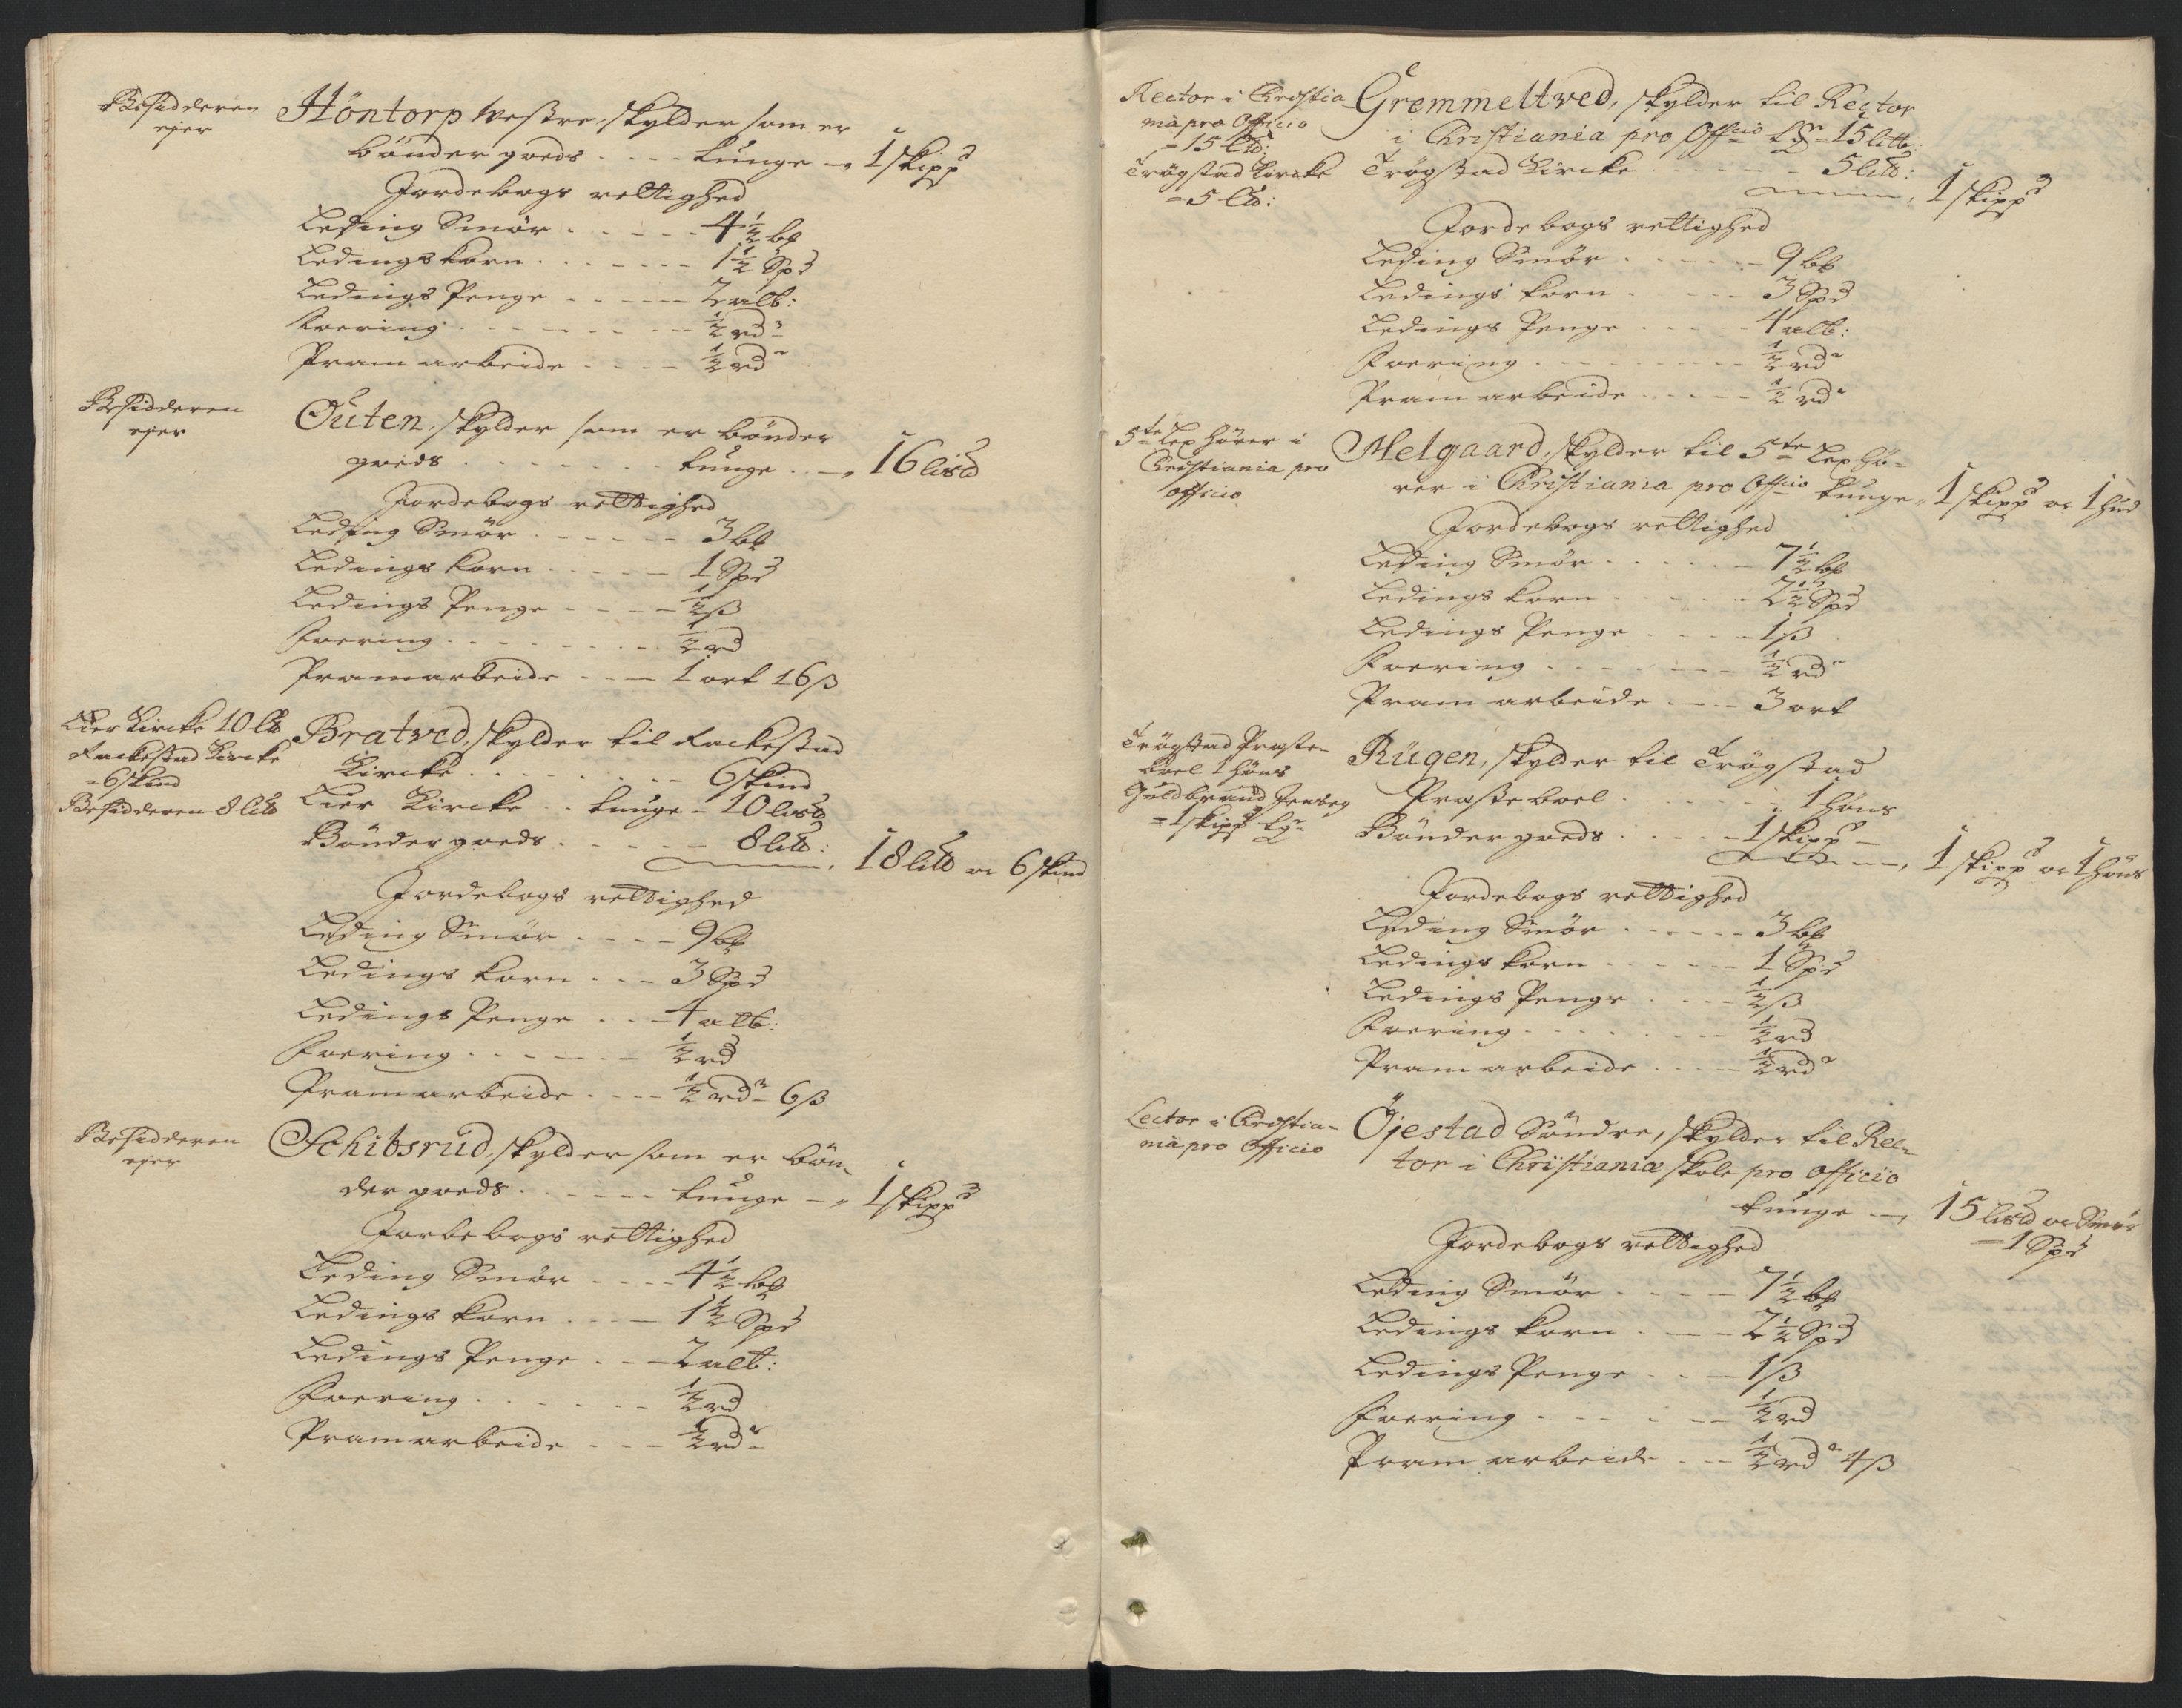 Besidderen
ejer
Höntorp Vestre, skylder som er
bönder goeds . . . . tunge - 1 skippd
Jordebogs rettighed
Leding Smör . . . . . 4 1/2 bß
Ledings korn . . . . . . 1 1/2 Spd
Ledings Penge . . . . . 2 alb:
Foering . . . . . . . . 1/2 rdr
Pram arbeide . . . . 1/2 rdr
Besidderen
ejer
Outen, skylder som er bönder
goeds . . . . . . . tunge . . 16 lisd
Jordebogs rettighed
Leding Smör . . . . . . 3 bß
Ledings korn . . . . . 1 Spd
Ledings Penge . . . . 1/2 ß
Foering . . . . . . . . 1/2 rd
Pramarbeide . . . 1 ort 16 ß
Lier Kircke 10 ld
Rackestad Kircke
= 6 skind
Besidderen 8 litd
Bratved, skylder til Rackestad
Kircke . . . . . . . . 6 skind
Lier Kircke . . tunge - 10 lisd
Bönder goeds . . . . . 8 litd:
18 litd oc 6 skind
Jordebogs rettighed
Leding Smör . . . . 9 bß
Ledings korn . . . 3 Spd
Ledings Penge . . . 4 alb:
Foering . . . . . . . 1/2 rd
Pramarbeide . . . . 1/2 rdr 6 ß
Besidderen
ejer
Schibsrud, skylder som er bön-
der goeds . . . . . . tunge - 1 skippd
Jorbebogs rettighed
Leding Smör . . . . 4 1/2 bß
Ledings korn . . . . 1 1/2 Spd
Ledings Penge . . . 2 alb:
Foering . . . . . . . 1/2 rd
Pramarbeide . . . . 1/2 rdr
Rector i Christia-
nia pro Officio
= 15 ltd:
Trögstad Kircke
= 5 ltd:
Gremmeltved, skylder til Rector
i Christiania pro Officio 15 littd:
Trögstad Kircke . . . . . . 5 litd:
1 skippd
Jordebogs rettighed
Leding Smör . . . . . 9 bß
Ledings korn . . . . 3 Spd
Ledings Penge . . . . . 4 alb:
Foering . . . . . . . . . 1/2 rdr
Pram arbeide . . . . . 1/2 rdr
5te Lex hörer i
Christiania pro
officio
Melgaard, skylder til 5te Lex hö-
rer i Christiania pro Officio tunge - 1 skippd oc 1 hud
Jordebogs rettighed
Leding Smör . . . . . . 7 1/2 bß
Ledings korn . . . . . . 2 1/2 Spd
Ledings Penge . . . . 1 ß
Foering . . . . . . . . 1/2 rdr
Pram arbeide . . . . 3 ort
Trögstad Præste-
boel 1 höns
Guldbrand Jenseg
= 1 skippd
Rügen, skylder til Trögstad
Præsteboel . . . . . . 1 höns
Bönder goeds . . . . . 1 skippd
1 skippd oc 1 höns
Jordebogs rettighed
Leding Smör . . . . . . 3 bß
Ledings korn . . . . . . 1 Spd
Ledings Penge . . . . 1/2 ß
Foering . . . . . . . . 1/2 rd
Pram arbeide . . . . . 1/2 rdr
Lector i Christia-
nia pro Officio
Öjestad Söndre, skylder til Rec-
tor i Christiania skole pro officio
tunge - 15 lisd oc Smör
= 1 Spd
Jordebogs rettighed
Leding Smör . . . . . 7 1/2 bß
Ledings korn . . . . 2 1/2 Spd
Ledings Penge . . . 1 ß
Foering . . . . . . . 1/2 rd
Pram arbeide . . . 1/2 rdr 4 ß